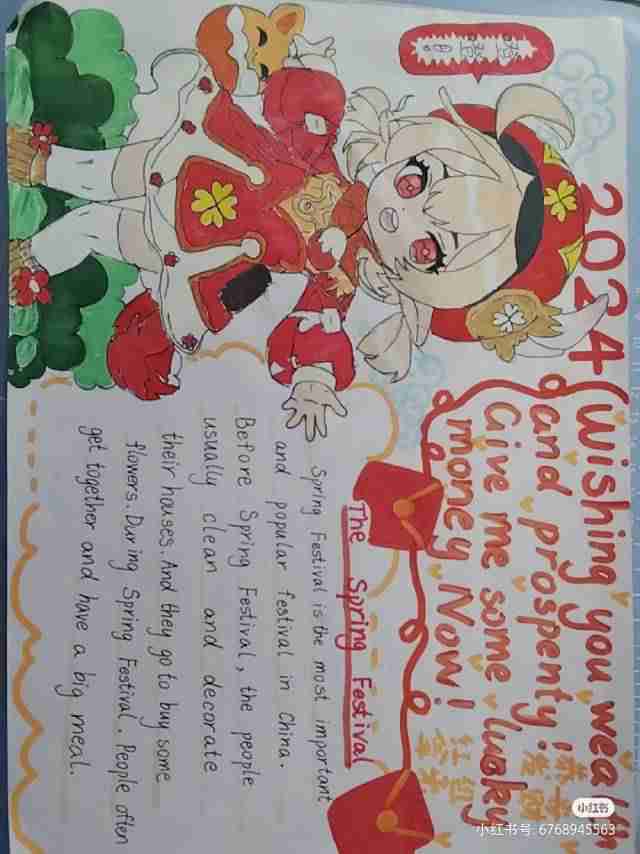 2024 Wishing you wealth
and prospenty!
Give me some lucky
money Now!
恭喜
发财
红包
拿来
The Spring Festival
Spring Festival is the most important
and popular festival in China.
Before Spring Festival, the people
usually clean and decorate
their houses. And they go to buy some
flowers. During Spring Festival. People often
get together and have a big meal.
小红书
小红书号: 6768945563